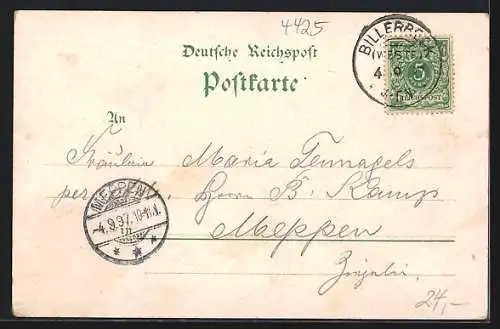 4425
Deutsche Reichspost
Postkarte
BILLERBECK
(WESTF.)
4 9
5
REICHSPOST
An
Fräulein Maria Tennagels
per Herrn B. Kamp
Meppen
MEPPEN
4.9.97. 10-11.V.
24,-